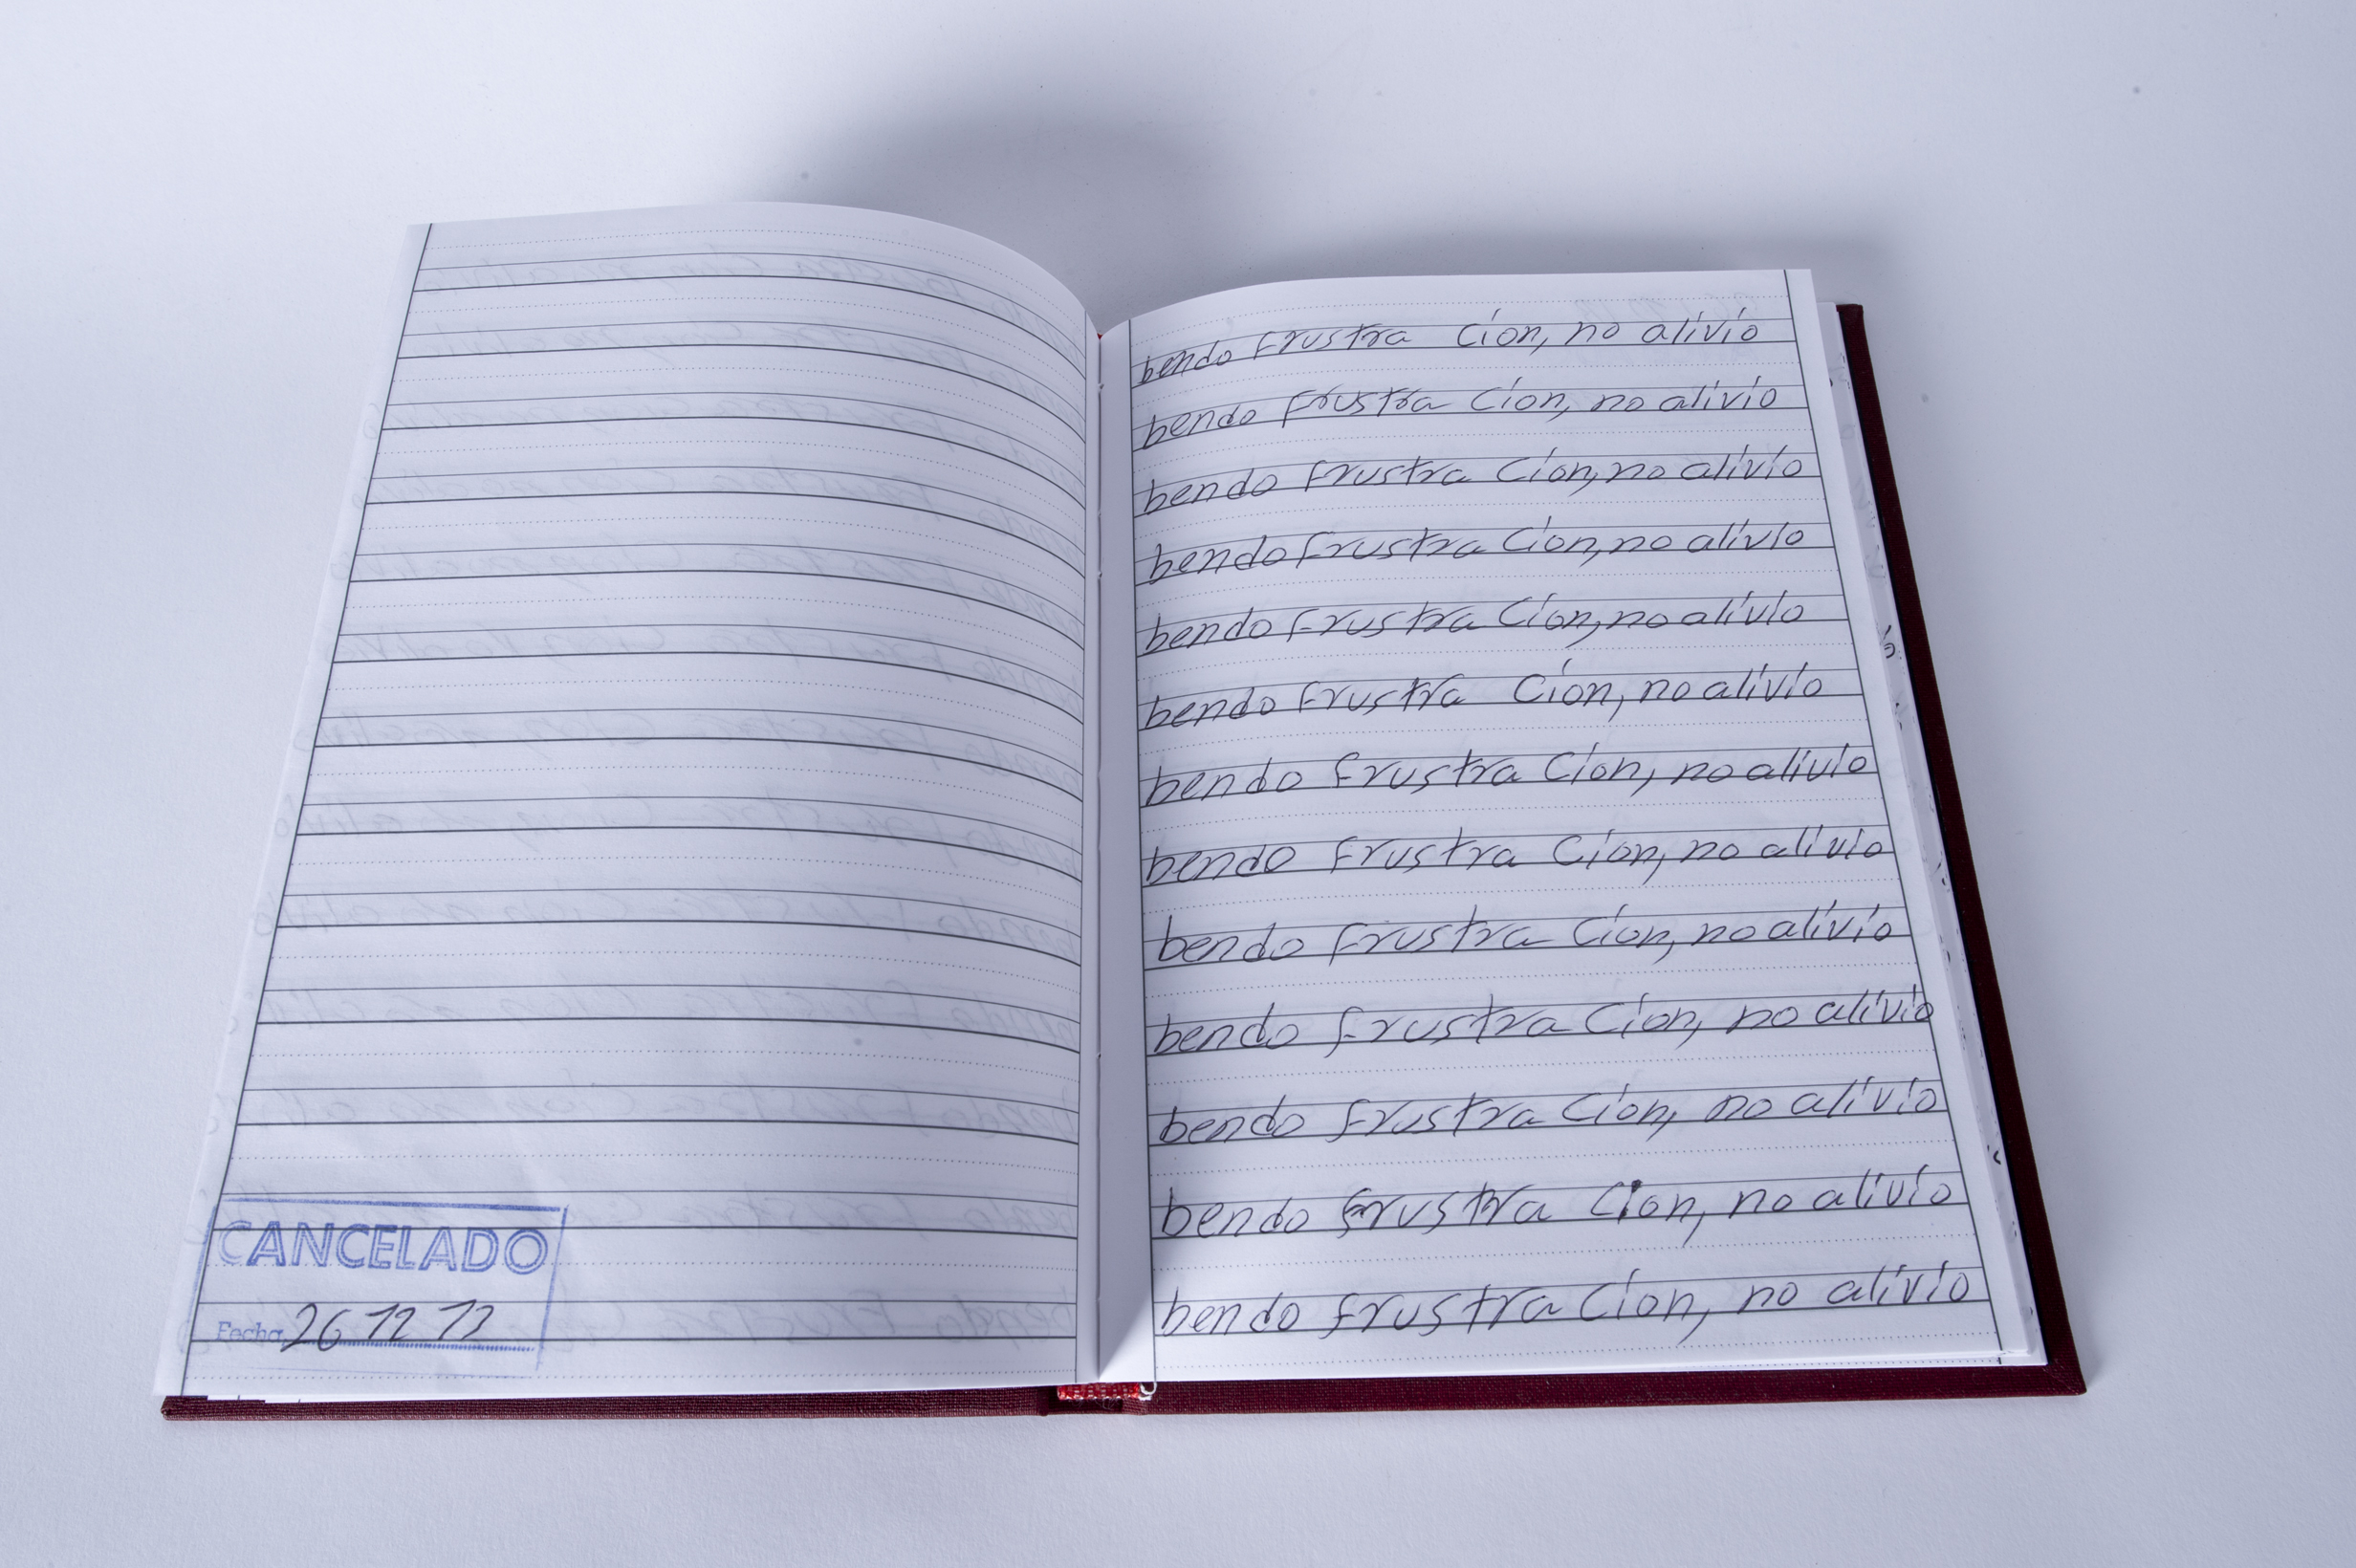 CANCELADO
Fecha 26 12 12
bendo frustra Cion, no alivio
bendo frustra Cion, no alivio
bendo frustra Cion, no alivio
bendo frustra Cion, no alivio
bendo frustra Cion, no alivio
bendo frustra Cion, no alivio
bendo frustra Cion, no alivio
bendo frustra Cion, no alivio
bendo frustra Cion, no alivio
bendo frustra Cion, no alivio
bendo frustra Cion, no alivio
bendo frustra Cion, no alivio
bendo frustra Cion, no alivio